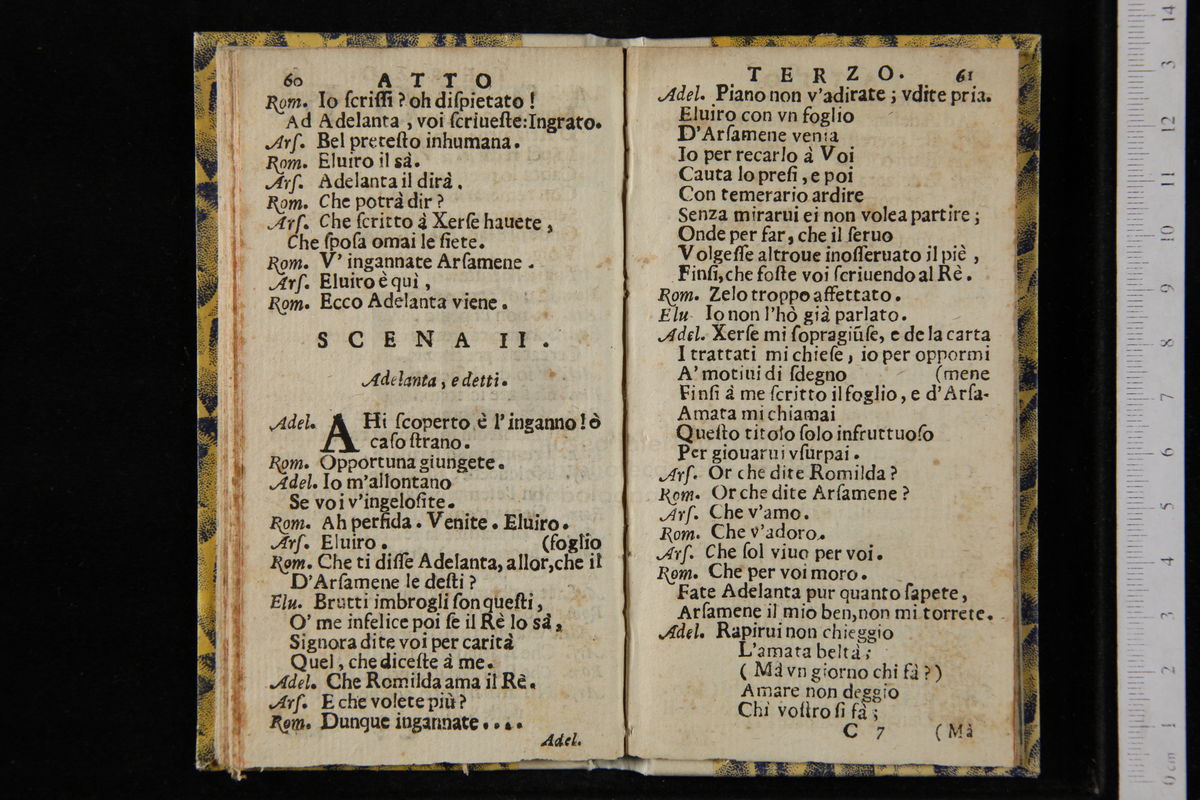 60 ATTO
Rom. Io ſcriſſi ? oh diſpietato !
Ad Adelanta , voi ſcriueſte: Ingrato.
Arſ. Bel preteſto inhumana.
Rom. Eluiro il sà.
Arſ. Adelanta il dirà.
Rom. Che potrà dir ?
Arſ. Che ſcritto à Xerſe hauete ,
Che ſpoſa omai le ſiete.
Rom. V' ingannate Arſamene .
Arſ. Eluiro è quì ,
Rom. Ecco Adelanta viene .
SCENA II.
Adelanta , e detti.
Adel. AHi ſcoperto è l' inganno ! ò
caſo ſtrano.
Rom. Opportuna giungete.
Adel. Io m'allontano
Se voi v'ingeloſite.
Rom. Ah perfida . Venite . Eluiro.
Arſ. Eluiro . (foglio
Rom. Che ti diſſe Adelanta, allor, che il
D'Arſamene le deſti ?
Elu. Brutti imbrogli ſon queſti ,
O' me infelice poi ſe il Rè lo sà ,
Signora dite voi per carità
Quel , che diceſte à me.
Adel. Che Romilda ama il Rè.
Arſ. E che volete più ?
Rom. Dunque ingannate . . . .
Adel.
TERZO. 61
Adel. Piano non v'adirate ; vdite pria.
Eluiro con vn foglio
D'Arſamene venia
Io per recarlo à Voi
Cauta lo preſi , e poi
Con temerario ardire
Senza mirarui ei non volea partire ;
Onde per far, che il ſeruo
Volgeſſe altroue inoſſeruato il piè ,
Finſi, che foſte voi ſcriuendo al Rè.
Rom. Zelo troppo affettato .
Elu Io non l'hò già parlato.
Adel. Xerſe mi ſopragiũſe, e de la carta
I trattati mi chieſe , io per oppormi
A' motiui di ſdegno (mene
Finſi à me ſcritto il foglio, e d'Arſa-
Amata mi chiamai
Queſto titolo ſolo infruttuoſo
Per giouarui vſurpai .
Arſ. Or che dite Romilda ?
Rom. Or che dite Arſamene ?
Arſ. Che v'amo.
Rom. Che v'adoro.
Arſ. Che ſol viuo per voi .
Rom. Che per voi moro.
Fate Adelanta pur quanto ſapete ,
Arſamene il mio ben, non mi torrete.
Adel. Rapirui non chieggio
L'amata beltà ;
( Mà vn giorno chi fà ? )
Amare non deggio
Chi voſtro ſi fà ;
C 7 ( Mà
14
13
12
11
10
9
8
7
6
5
4
3
2
1
0 cm